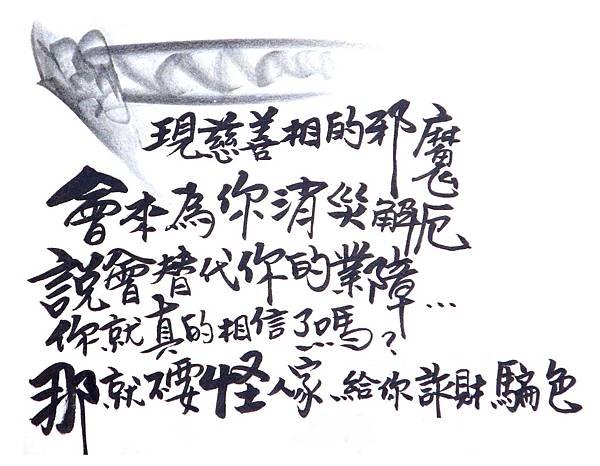 現慈善相的邪魔
會本為你消災解厄
說會替代你的業障…
你就真的相信了嗎?
那就不要怪人家給你詐財騙色